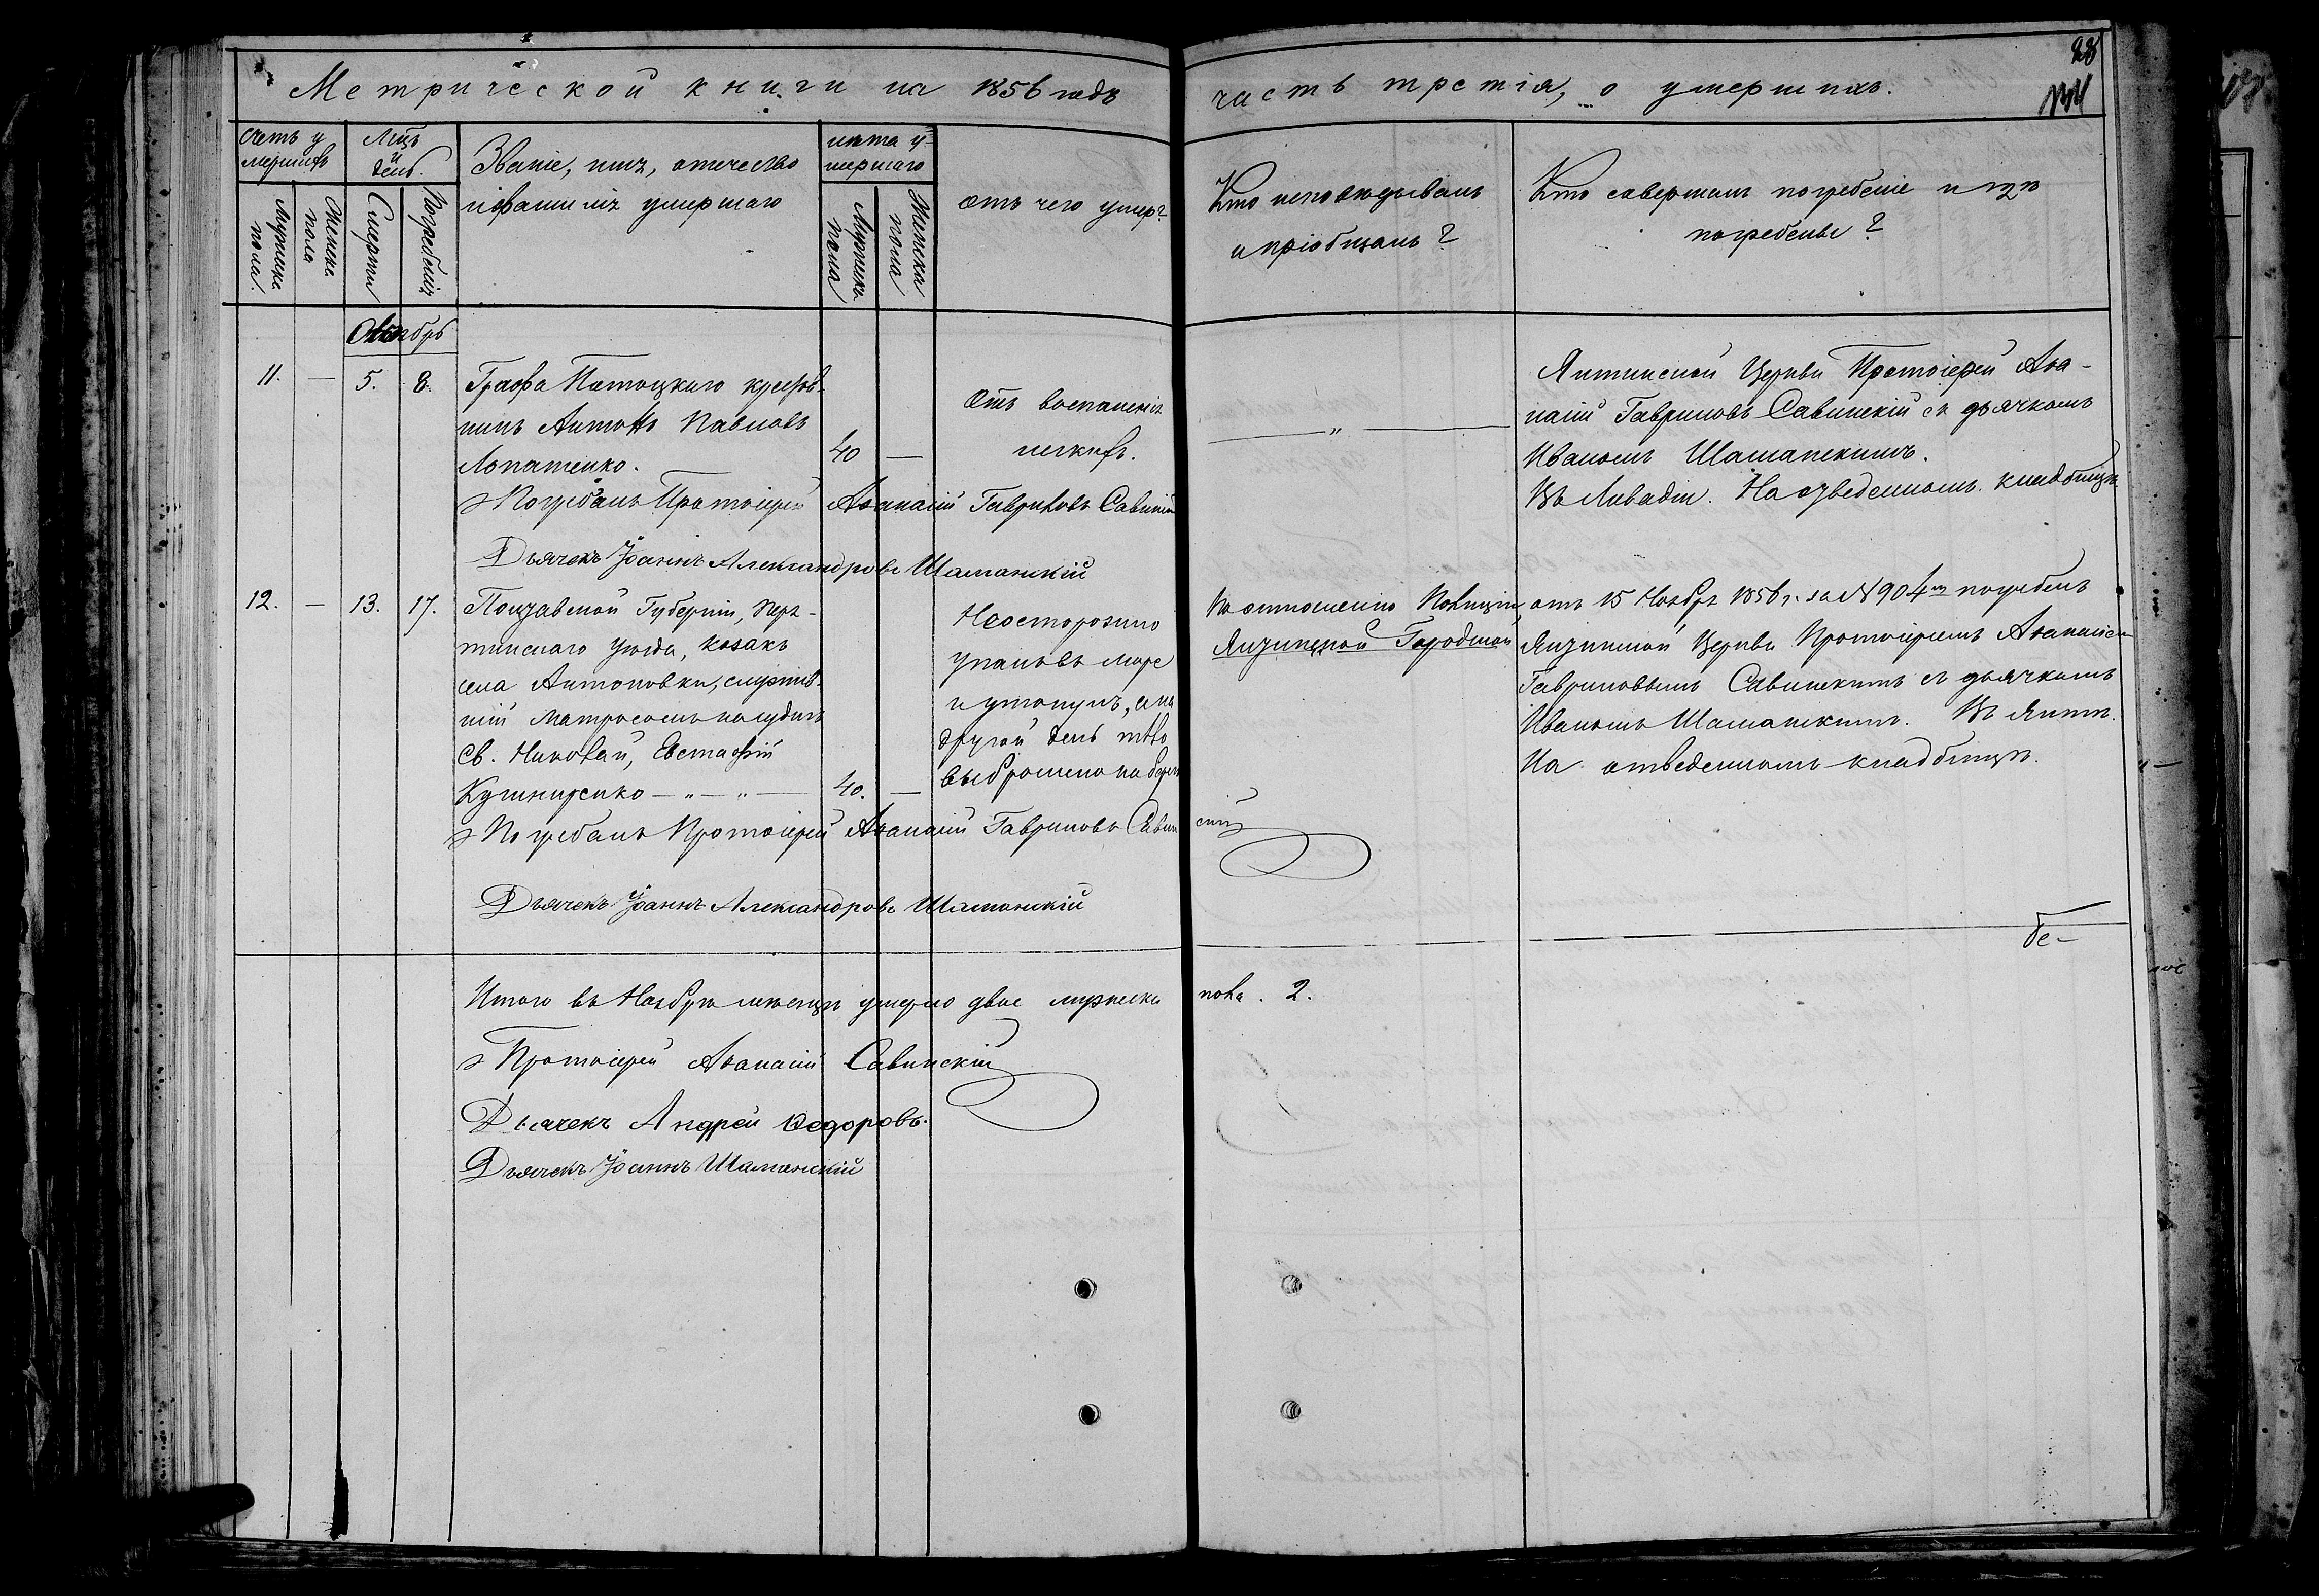 88
Метрической книги на 1856 годъ часть третія, о умершихъ.
Счетъ у
мершихъ
Мужеска
пола.
Женска
пола
Мѣц.
и
день.
Смерти
Погребенія
Званіе, имя, отечество
и фамилія умершаго
Лѣта у-
мершаго
Мужеска
пола
Женска
пола
отъ чего умеръ?
Кто исповѣдывалъ
и пріобщалъ?
Кто совершалъ погребеніе и гдѣ
погребены?
11. — 5. 8.
Графа Потоцкаго крестья-
нинъ Антонъ Павловъ
Лопатенко.
40 —
Отъ воспаленія
легкихъ.
— " —
Ялтинской Церкви Протоіерей Аѳа-
насій Гавриловъ Савинскій съ дьячкомъ
Иваномъ Шаманскимъ.
Въ Ливадіи. На отведенномъ кладбищѣ
Погребалъ Протоіерей Аѳанасій Гавриловъ Савинскій
Дьячекъ Іоаннъ Александровъ Шаманскій
12. — 13. 17.
Полтавской Губерніи, Пиря-
тинскаго уѣзда, козакъ
села Антоновки, служив-
шій матросомъ на суднѣ
Св. Николай, Евстафій
Кушниренко — " — " —
40. —
Неосторожно
упалъ въ море
и утонулъ, а на
другой день тѣло
выброшено на берегъ
По отношенію Полиціи
Ялтинской Городской
отъ 15 Ноября 1856 г. за № 904м погребенъ
Ялтинской Церкви Протоіереемъ Аѳанасіемъ
Гавриловымъ Савинскимъ съ дьячкомъ
Иваномъ Шаманскимъ. Въ Ялтѣ.
На отведенномъ кладбищѣ.
Погребалъ Протоіерей Аѳанасій Гавриловъ Савинскій
Дьячекъ Іоаннъ Александровъ Шаманскій
Итого въ Ноябрѣ мѣсяцѣ умерло двое мужеска пола. 2.
Протоіерей Аѳанасій Савинскій
Дьячекъ Андрей Ѳедоровъ.
Дьячекъ Іоаннъ Шаманскій